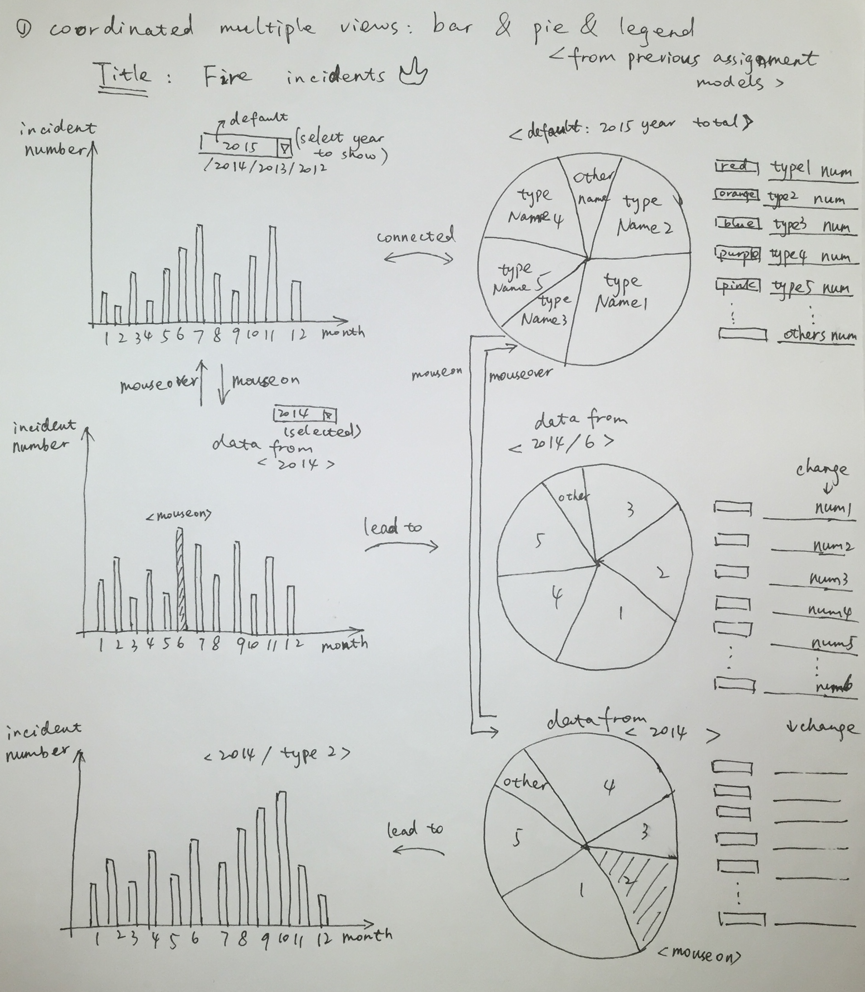 ① coordinated multiple views: bar & pie & legend
<from previous assignment
models>
Title: Fire incidents
default
2015
(select year
to show)
/2014/2013/2012
incident
number
1 2 3 4 5 6 7 8 9 10 11 12 month
connected
<default: 2015 year total>
other
name
type
Name 2
type
Name 4
type
Name 5
type
Name3
type
Name1
red type1 num
orange type2 num
blue type3 num
purple type4 num
pink type5 num
others num
mouseover
mouseon
mouseon
mouseover
2014
(selected)
data from
<2014>
incident
number
<mouseon>
1 2 3 4 5 6 7 8 9 10 11 12 month
lead to
data from
<2014/6>
other
3
5
2
4
1
change
num1
num2
num3
num4
num5
num6
incident
number
<2014/type 2>
1 2 3 4 5 6 7 8 9 10 11 12 month
lead to
data from
<2014>
other
4
5
3
2
1
<mouseon>
change